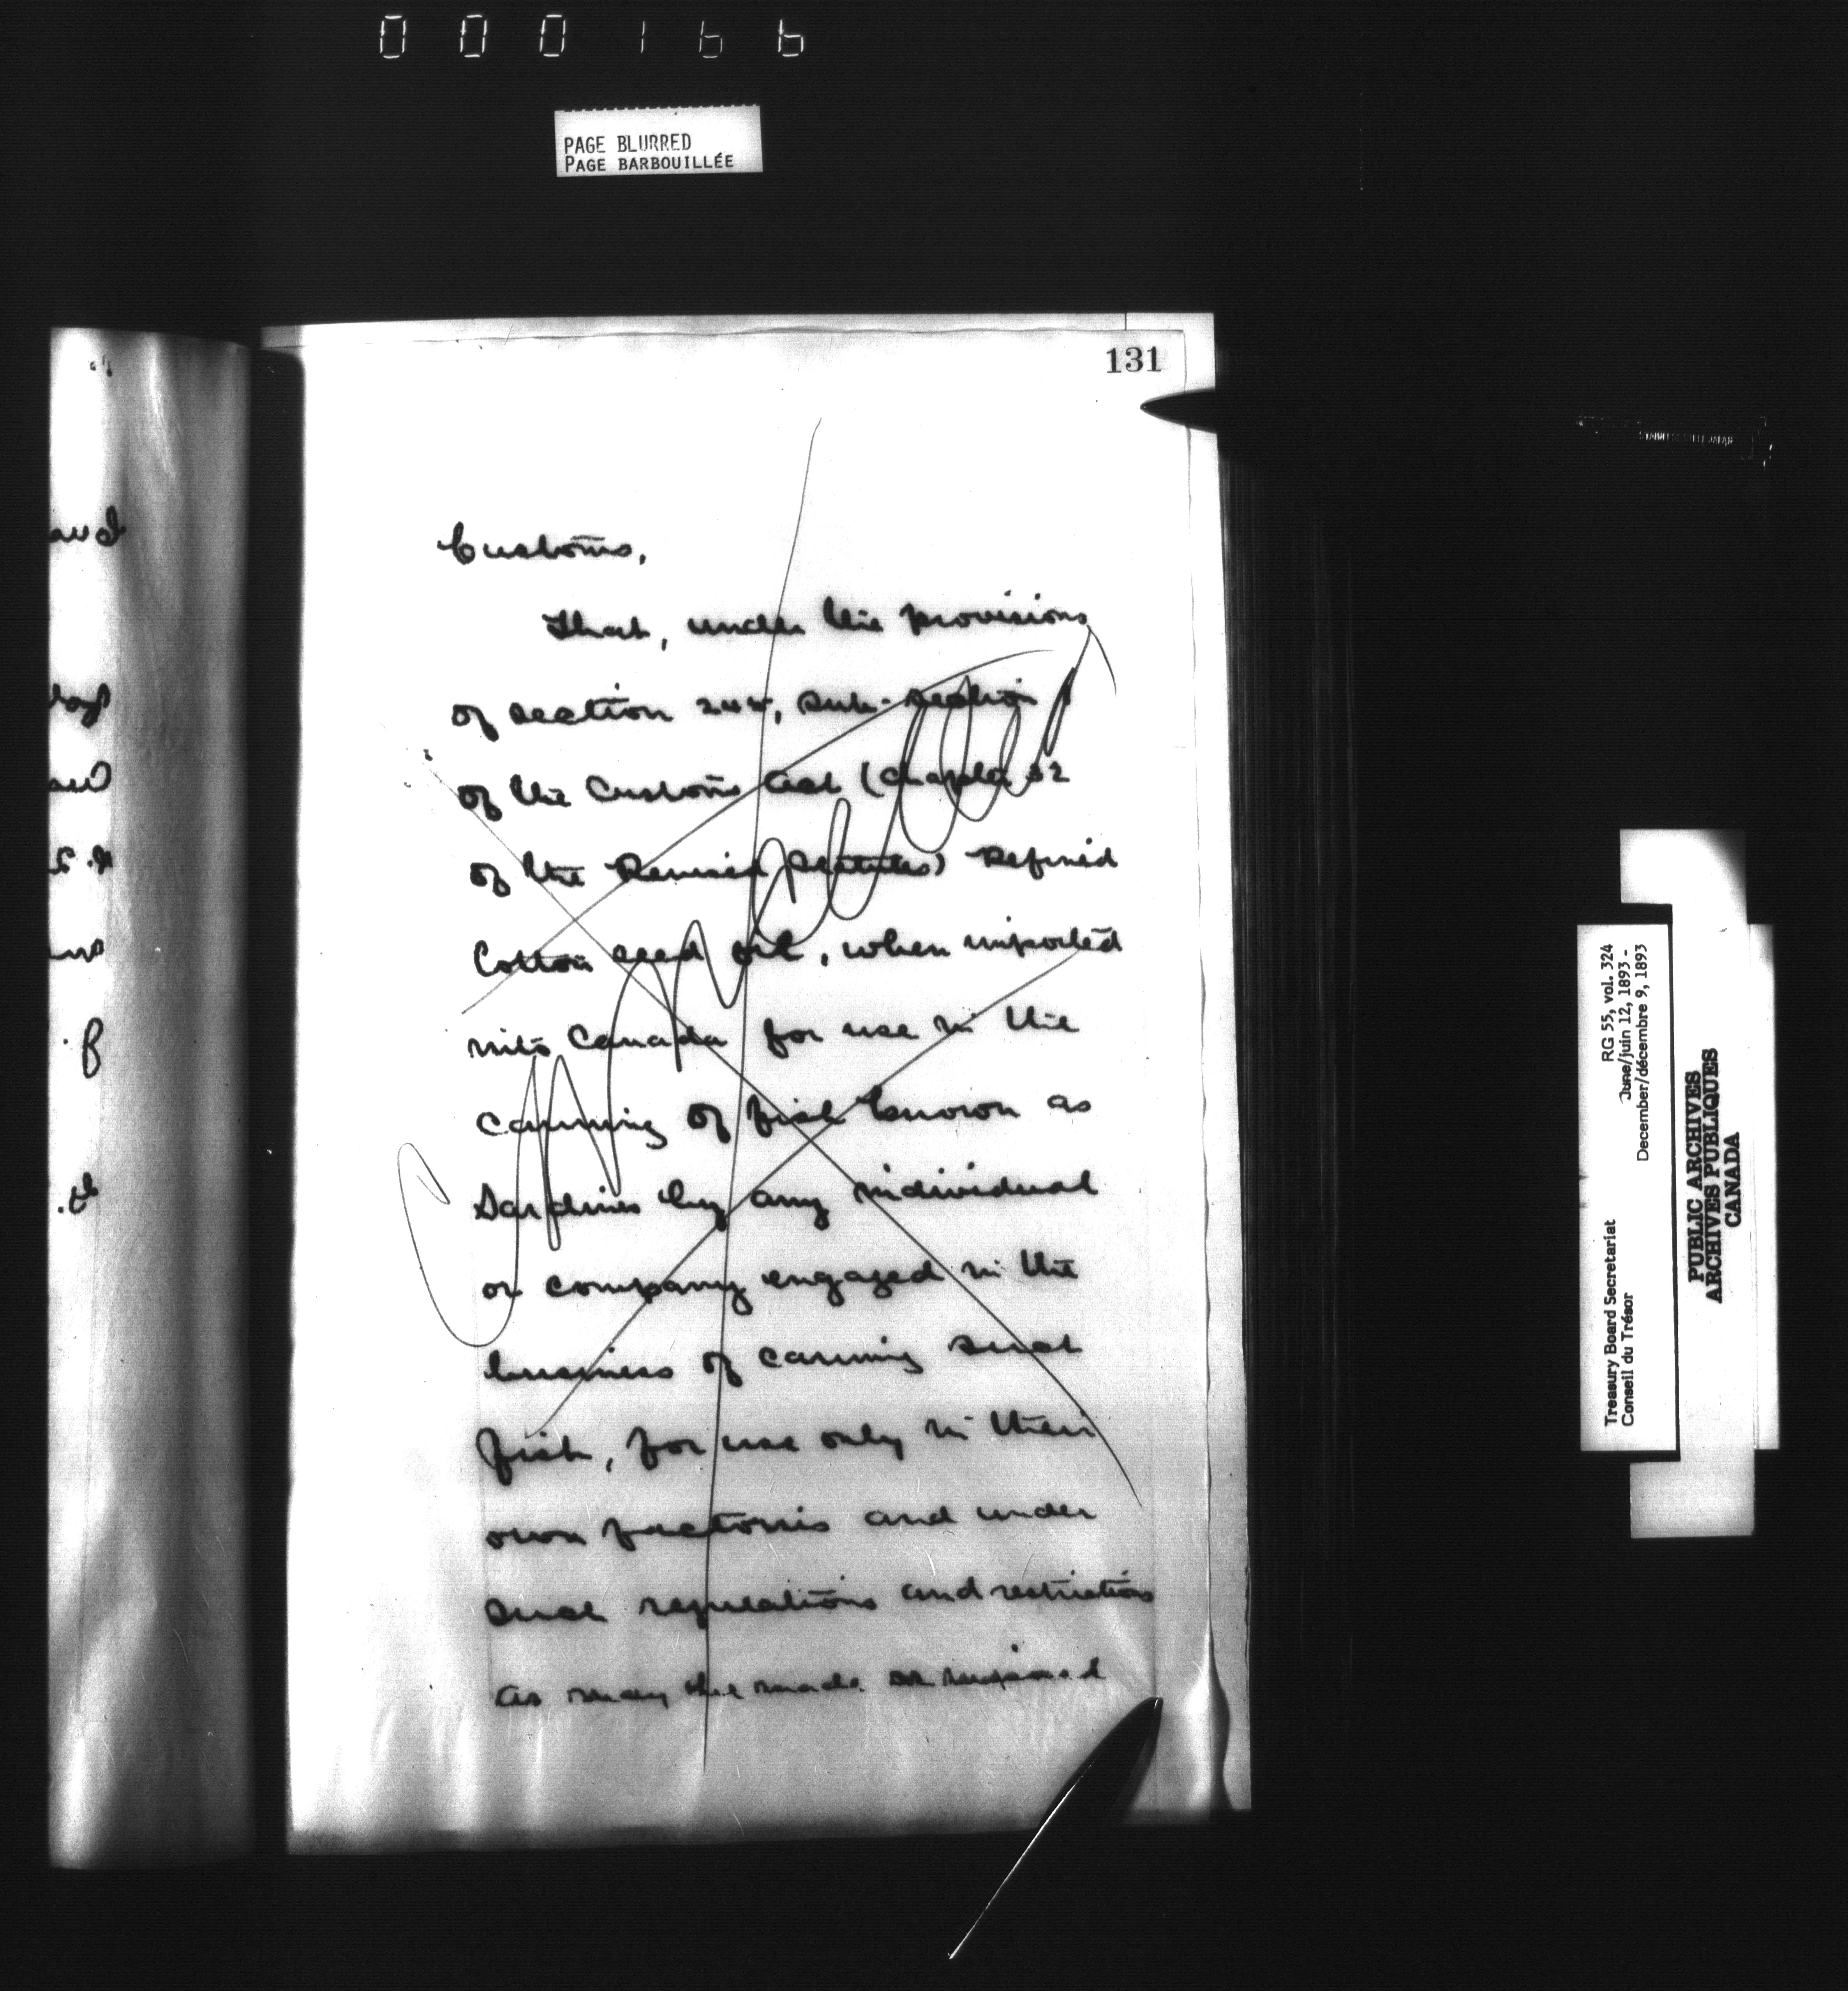 000166
PAGE BLURRED
PAGE BARBOUILLÉE
131
Customs,
That, under the provisions
of section 245, sub-section
of the Customs Act (Chapter 32
of the Revised Statutes) Refined
Cotton seed oil, when imported
into Canada for use in the
canning of fish known as
Sardines by any individual
or company engaged in the
business of canning such
fish, for use only in their
own factories and under
such regulations and restrictions
as may be made or required
Cancelled
STAINLESS STEEL JAPAN
RG 55, vol. 324
June/juin 12, 1893 -
December/décembre 9, 1893
Treasury Board Secretariat
Conseil du Trésor
PUBLIC ARCHIVES
ARCHIVES PUBLIQUES
CANADA